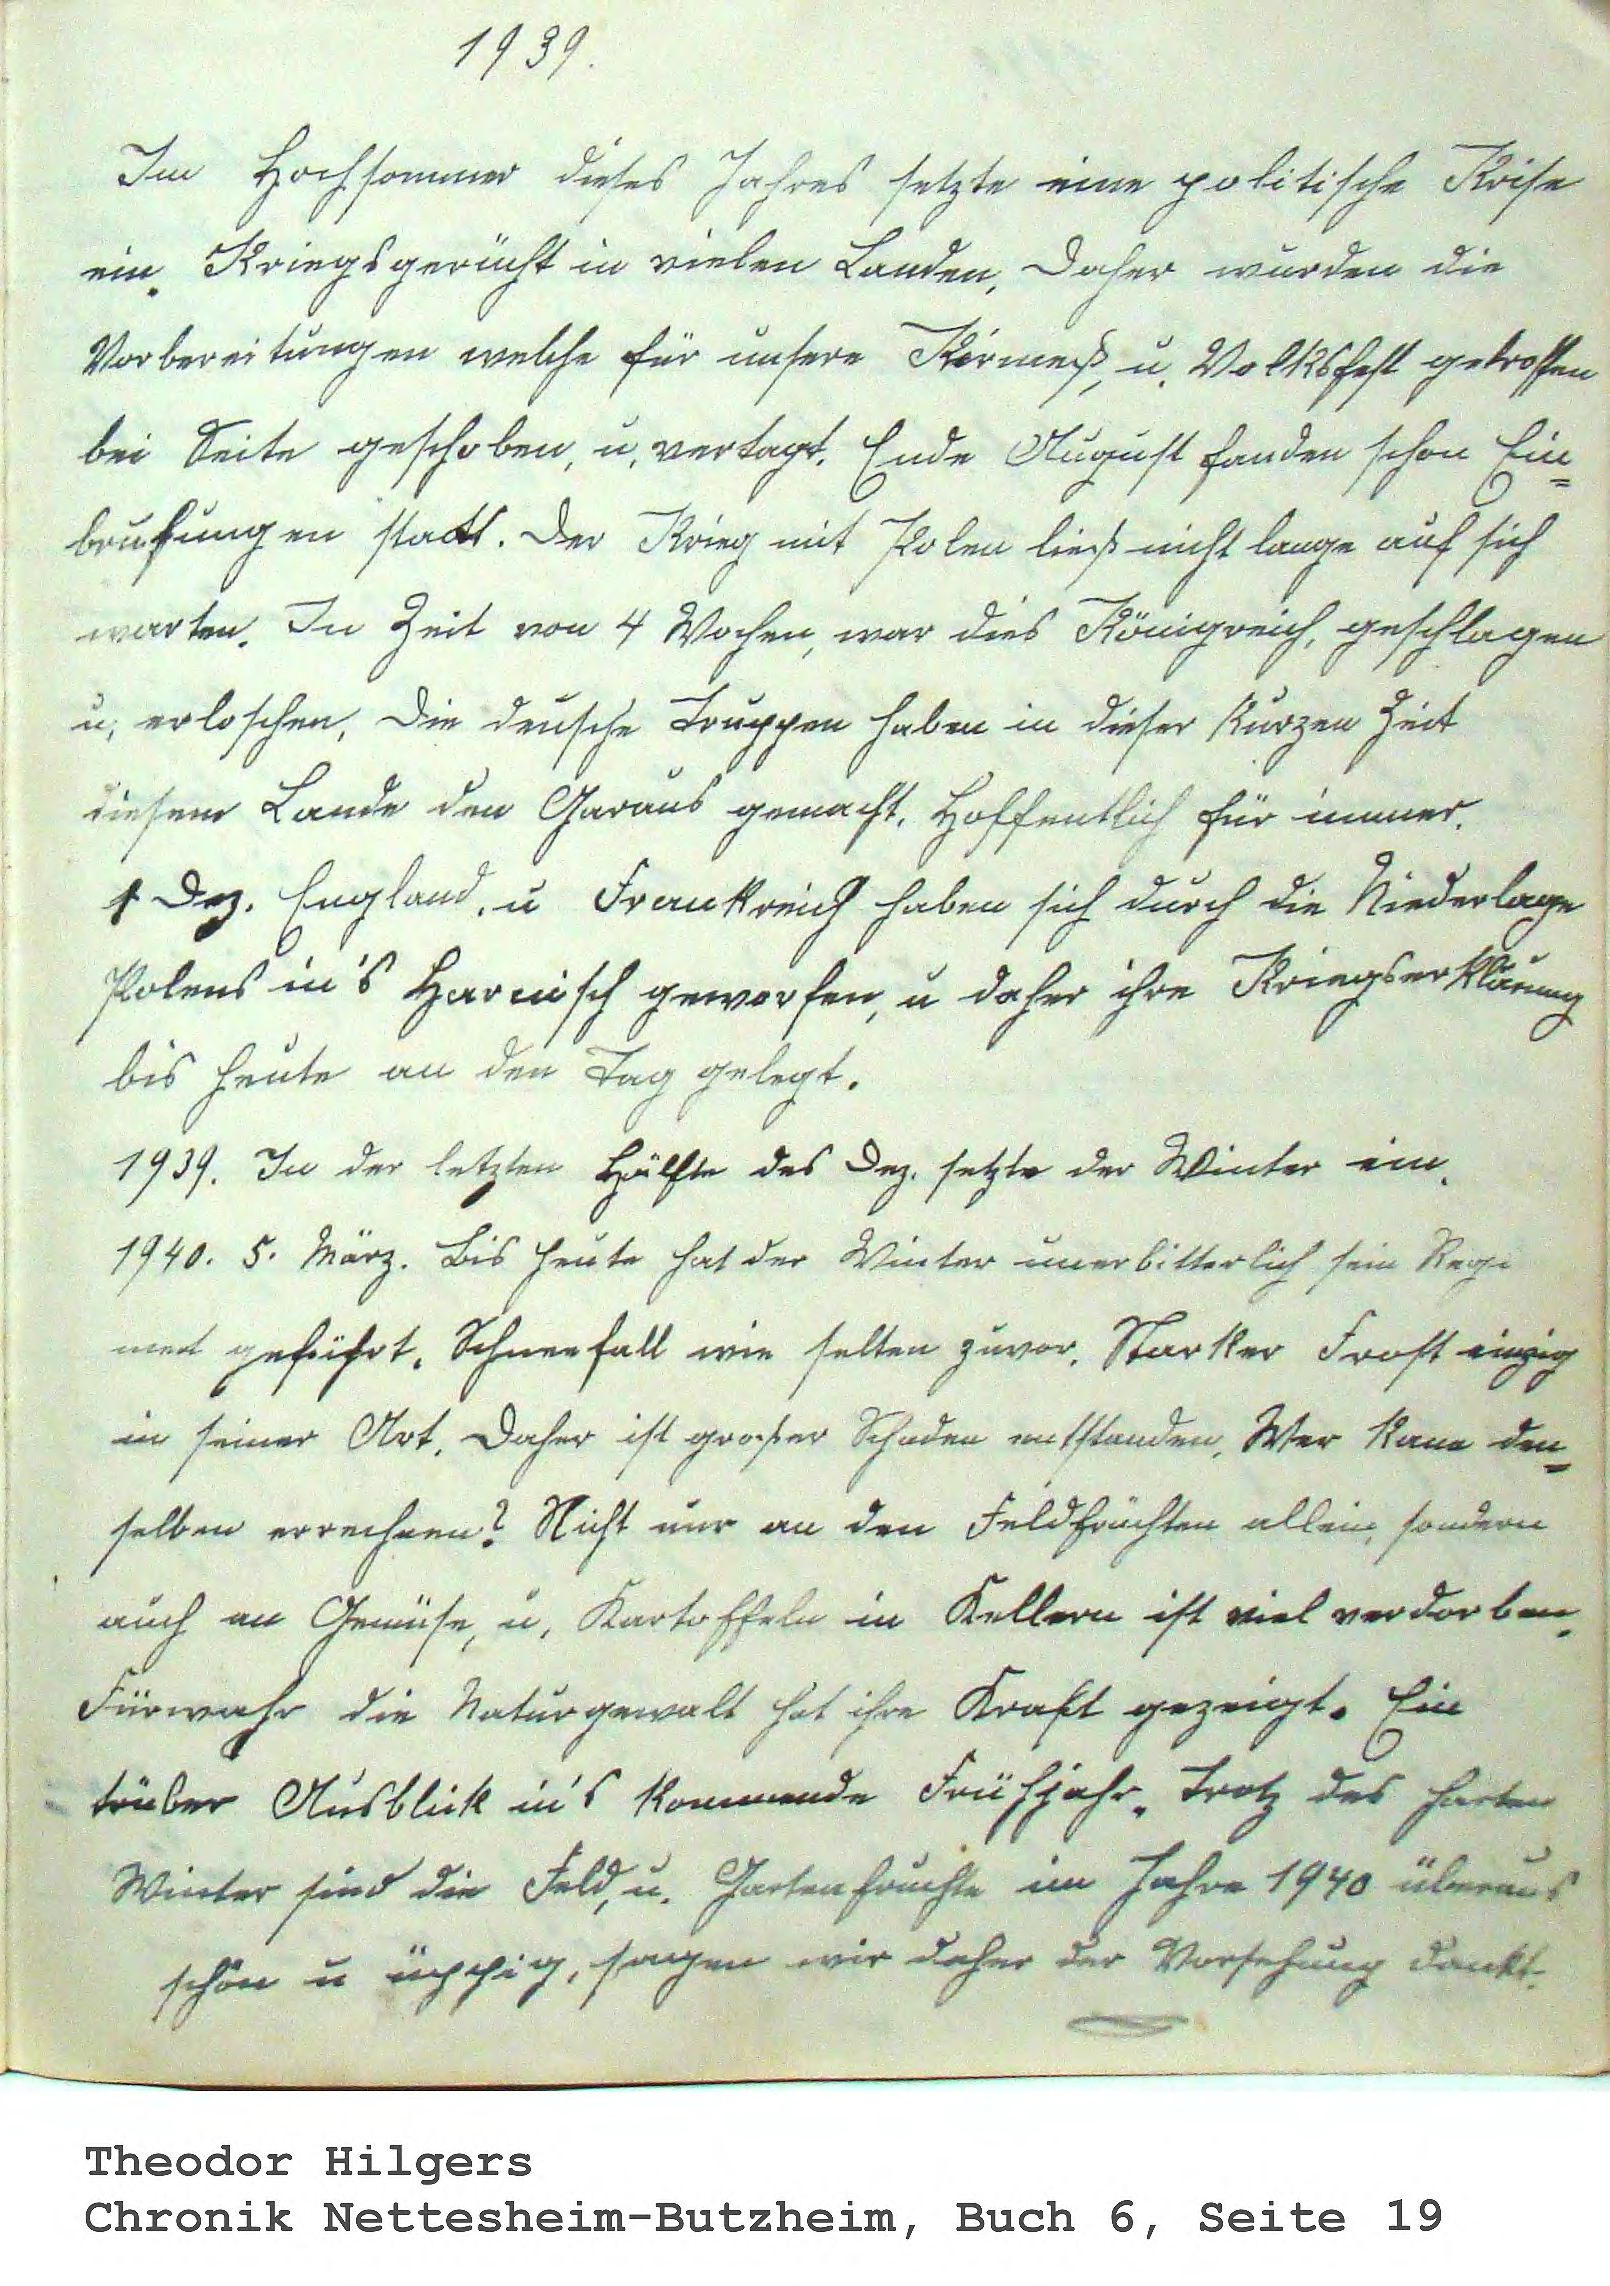 1939.
Im Hochsommer dieses Jahres setzte eine politische Krise
ein. Kriegsgerücht in vielen Landen, Daher wurden die
Vorbereitungen welche für unsere Kirmeß, u. Volksfest getroffen
bei Seite geschoben, u, vertagt. Ende August fanden schon Ein=
brufungen statt. Der Krieg mit Polen ließ nicht lange auf sich
warten. In Zeit von 4 Wochen, war dies Königreich, geschlagen
u, erloschen, Die deusche Truppen haben in dieser kurzen Zeit
diesem Lande den Garaus gemacht. Hoffentlich für immer.
1 Dez. England, u Frankreich haben sich durch die Niederlage
Polens in's Harnisch geworfen, u daher ihre Kriegserklärung
bis heute an den Tag gelegt.
1939. In der letzten Hälfte des Dez. setzte der Winter ein.
1940. 5. März. Bis heute hat der Winter unerbitterlich sein Regi
met geführt. Schneefall wie selten zuvor. Starker Frost einzig
in seiner Art. Daher ist großer Schaden entstanden. Wer kann den=
selben errechnen? Nicht nur an den Feldfrüchten allein, sondern
auch an Gemüse, u, Kartoffeln in Kellern ist viel verdorben.
Fürwahr die Naturgewalt hat ihre Kraft gezeigt. Ein
trüber Ausblick in's kommende Frühjahr. Trotz des harten
Winter sind die Feld, u. Gartenfruchte im Jahre 1940 überaus
schön u üppig, sagen wir daher der Vorsehung dankt.
Theodor Hilgers
Chronik Nettesheim-Butzheim, Buch 6, Seite 19